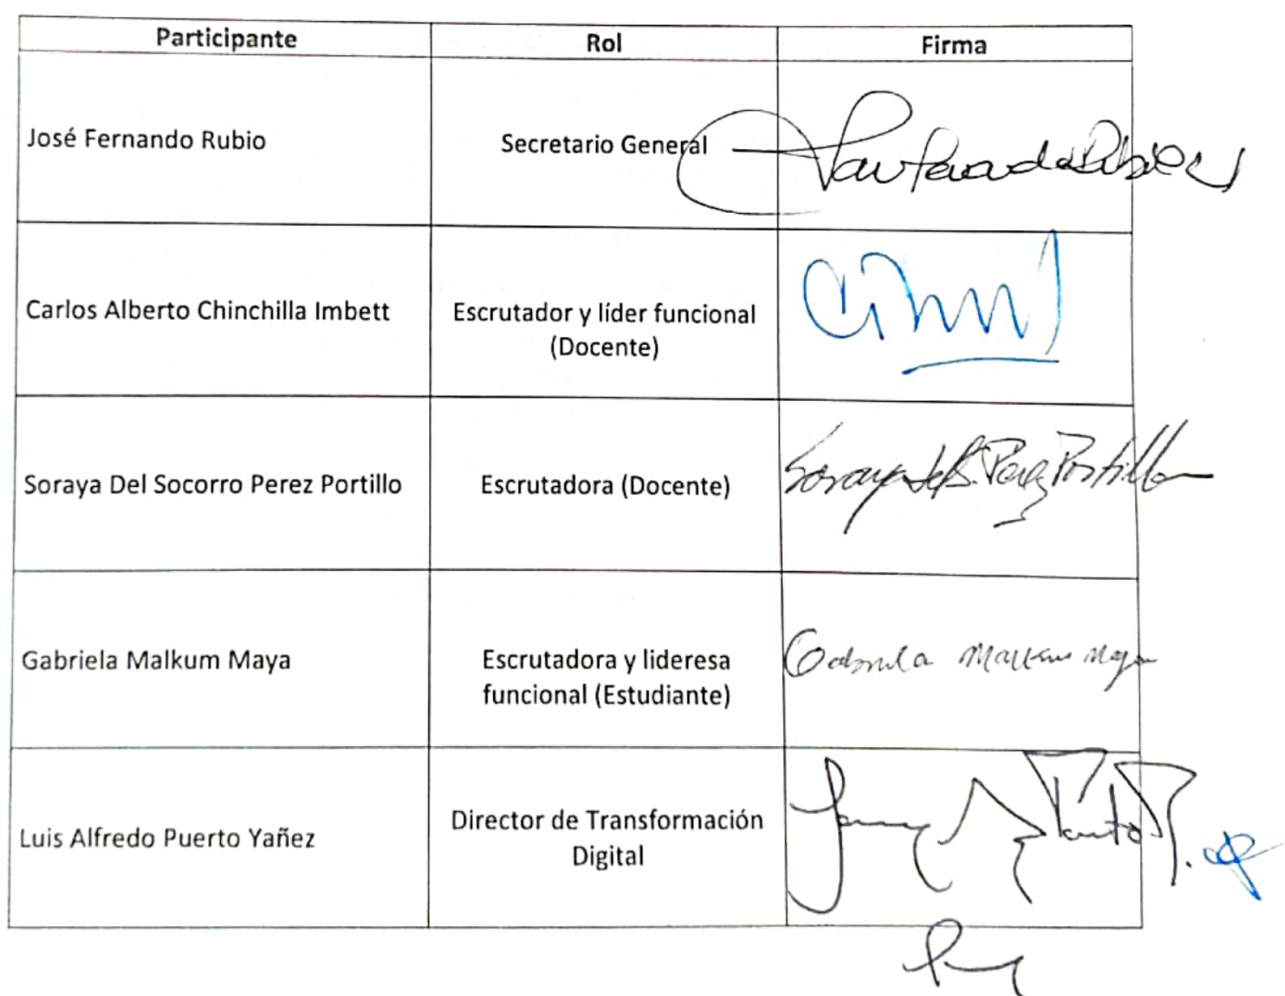 Participante Rol Firma
José Fernando Rubio Secretario General
Carlos Alberto Chinchilla Imbett Escrutador y líder funcional
(Docente)
Soraya Del Socorro Perez Portillo Escrutadora (Docente) Soraya del S. Perez Portillo
Gabriela Malkum Maya Escrutadora y lideresa Gabriela Malkum Maya
funcional (Estudiante)
Luis Alfredo Puerto Yañez Director de Transformación
Digital